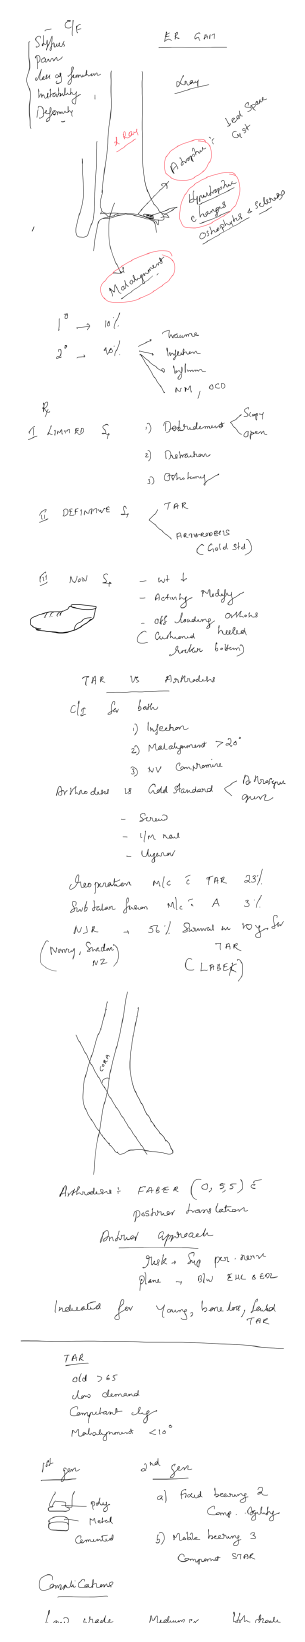 C/F
Stiffness
pain
loss of function
Instability
Deformity
X Ray
X Ray
Atrophic :
Jt Space
Cyst
Hypertrophic
changes
Osteophytes & Sclerosis
Malalignment
1° → 10%
2° → 90%
Trauma
Infection
Inflamm
NM, OCD
Rx
I LIMITED Sx
1) Debridement
Scopy
open
2) Distraction
3) Osteotomy
II DEFINITIVE Sx
TAR
ARTHRODESIS
(Gold std)
III NON Sx
- wt ↓
- Activity Modify
- off loading orthosis
( Cushioned heeled
rocker bottom)
TAR vs Arthrodesis
C/I for both
1) Infection
2) Malalignment > 20°
3) NV Compromise
Arthrodesis is Gold Standard
Arthroscopic
open
- Screw
- I/M nail
- Ilizarov
Reoperation M/c c̄ TAR 23%
Subtalar fusion M/c c̄ A 3%
NJR → 56% Survival in 10 yr for
TAR
(Norway, Sweden,
NZ)
CORA
Arthrodesis: (0, 5, 5) c̄
posterior translation
Anterior approach
risk → Sup per. nerve
plane → B/w EHL & EDL
Indicated for Young, bone loss, failed
TAR
TAR
old > 65
low demand
Competant lig
Malalignment <10°
1st gen
2nd gen
poly
Metal
Cemented
a) Fixed bearing 2
Comp. Agility
b) Mobile bearing 3
Component STAR
Complications
Low grade Medium gr High grade